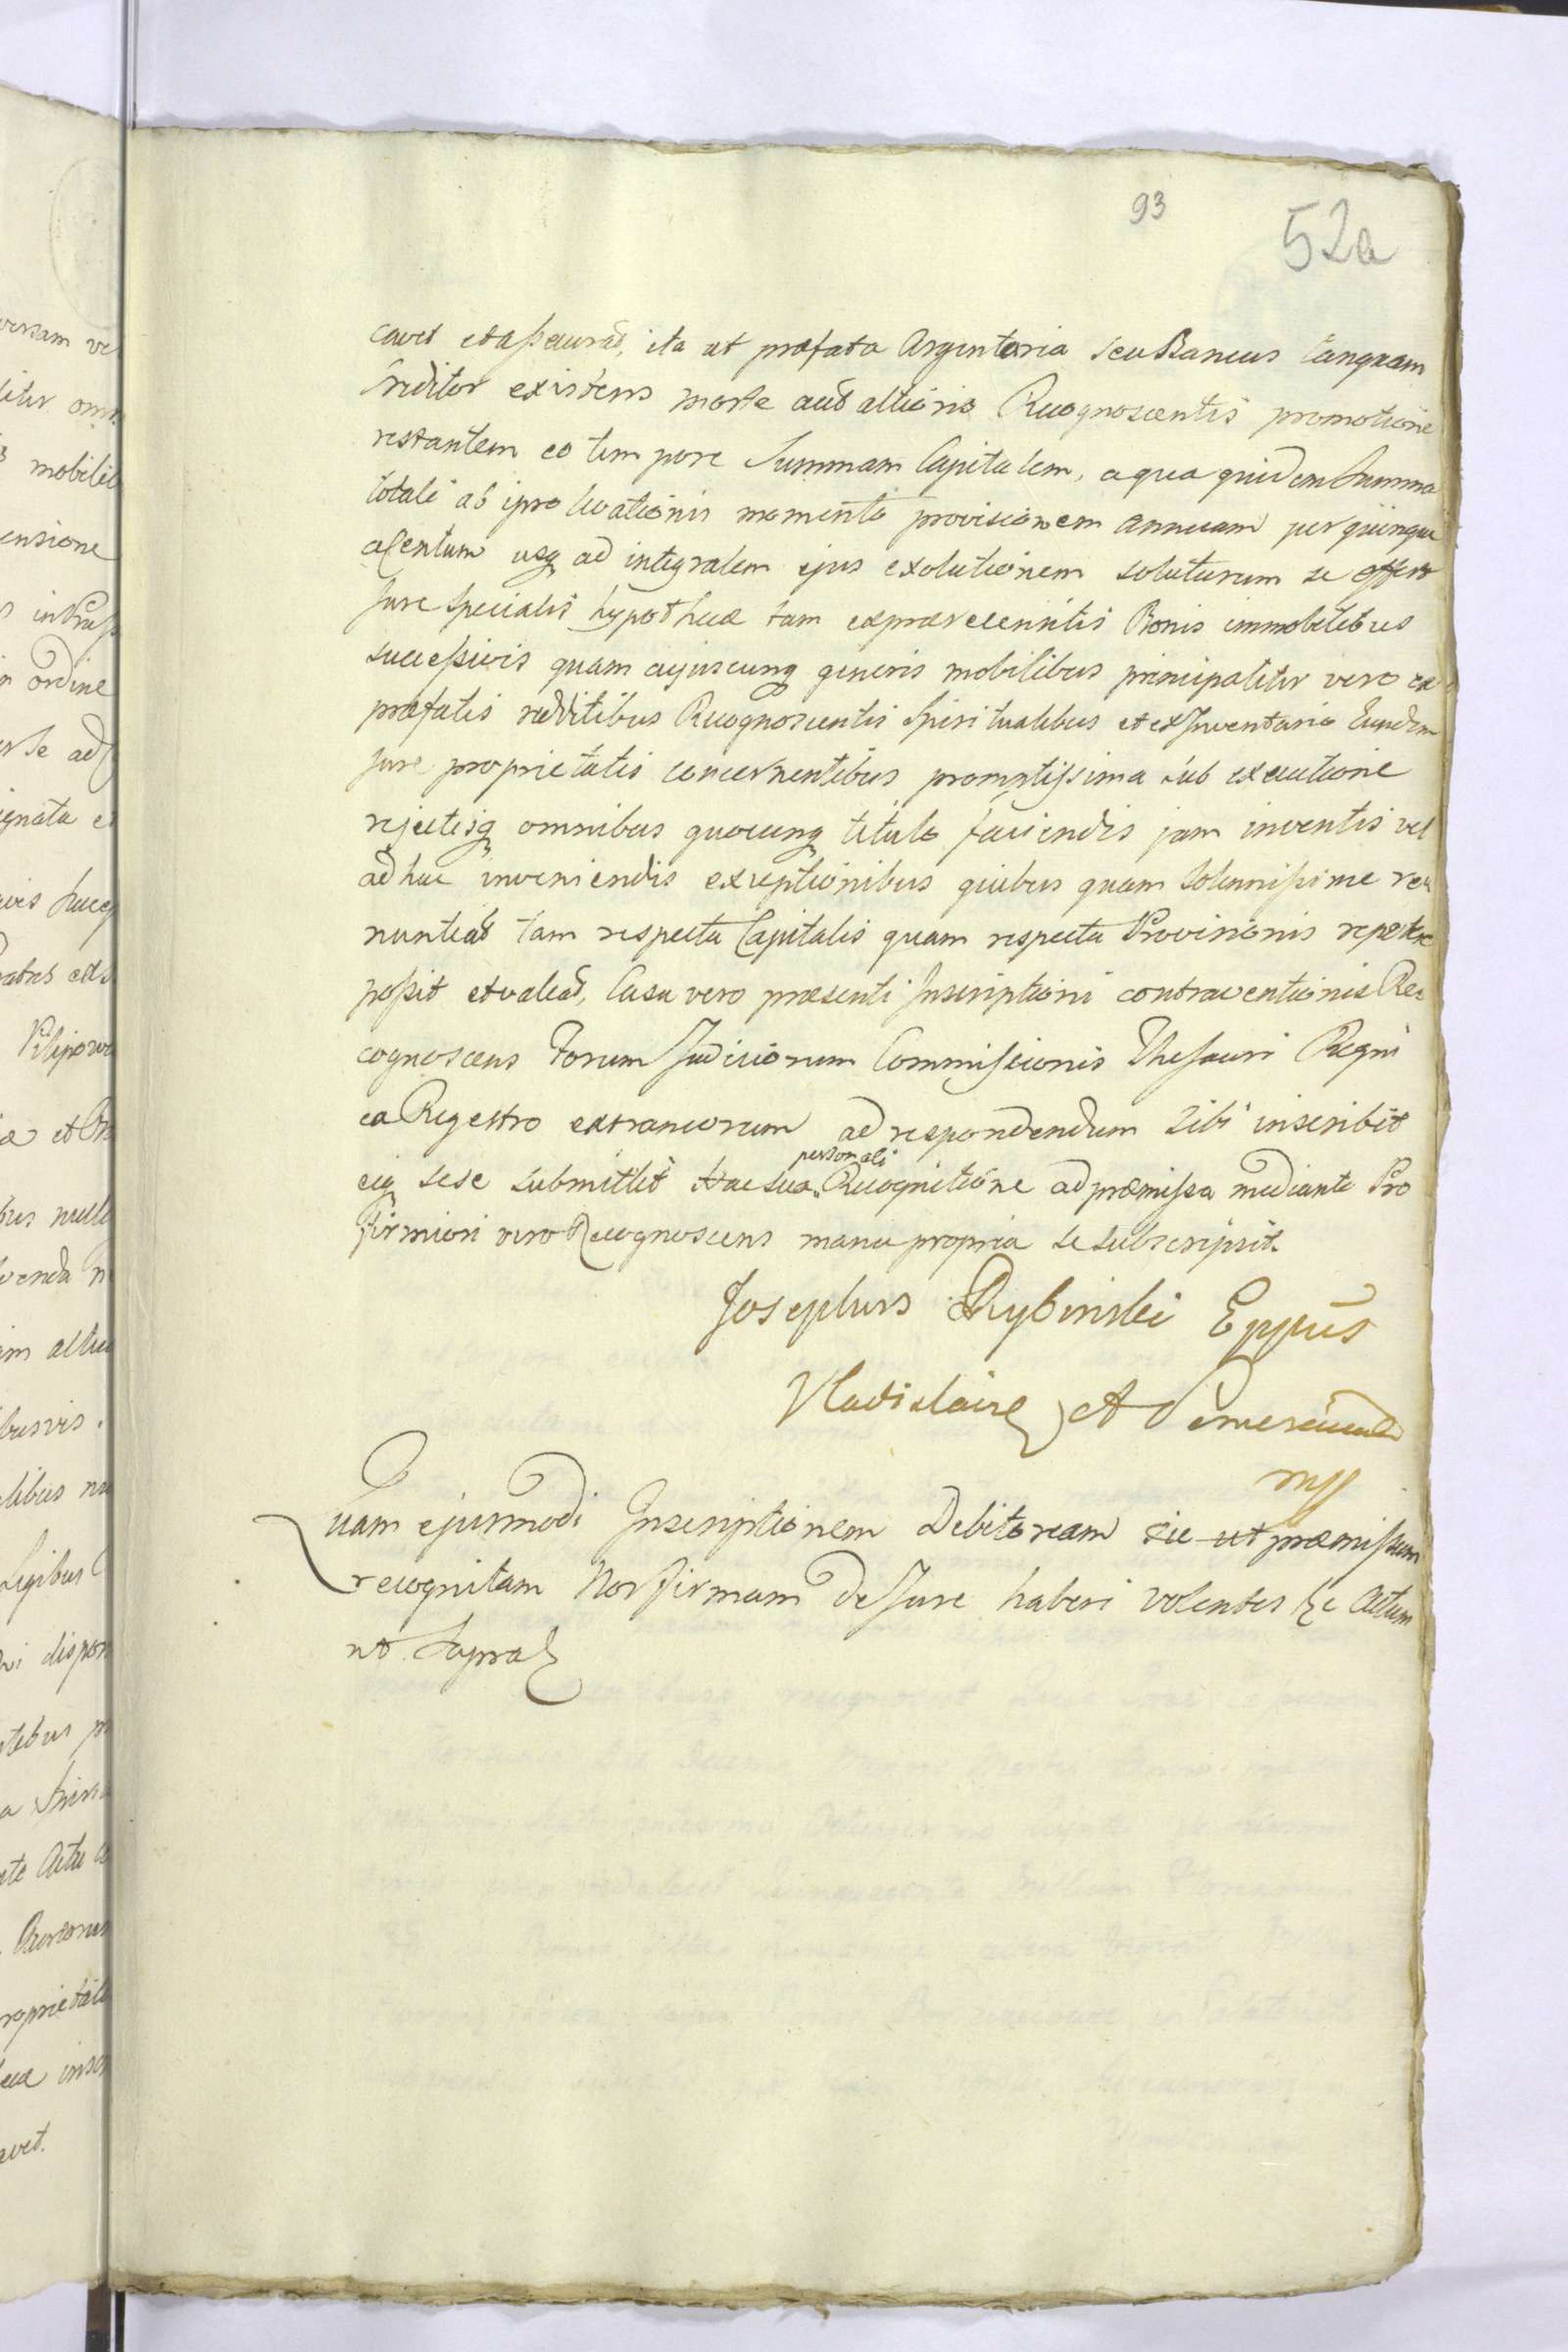 93
52a
cavet et assecurat, ita ut præfata Argentaria seu Bancus tanquam
Creditor existens morte aut altioris Recognoscentis promotione
restantem eo tempore Summam Capitalem, a qua quidem Summa
totali ab ipso levationis momento provisionem annuam per quinque
a Centum usq ad integralem ejus exolutionem soluturum se offert
Jure Specialis hypothecæ tam ex præ recensitis Bonis immobilibus
successivis quam cujuscunq generis mobilibus principaliter vero ex
præfatis redditibus Recognoscentis Spiritualibus et ex Inventario Eundem
Jure proprietatis concernentibus promptissima sub executione
rejectisq omnibus quocunq titulo faciendis jam inventis vel
adhuc inveniendis exceptionibus quibus quam Solennissime re
nuntiat tam respectu Capitalis quam respectu Provisionis repetere
possit et valeat, Casu vero præsenti Inscriptioni contraventionis Re=
cognoscens Forum Judiciorum Commissionis Thesauri Regni
ex Regestro extraneorum ad respondendum Sibi inscribit
eiq sese submittit Hac sua Recognitione ad præmissa mediante Pro
personali
firmiori vero Recognoscens manu propria se subscripsit.
Josephus Rybinski Eppus
Vladislaviensis et Pomeraniæ
mp
Quam ejusmodi Inscriptionem Debitoream sic ut præmissum
recognitam Nos firmam de Jure haberi volentes &c Actum
ut Supra
versam
mobilib
ensione
ordine
ignata
altu
busvis.
Legibus
dispon
Actu
avet.